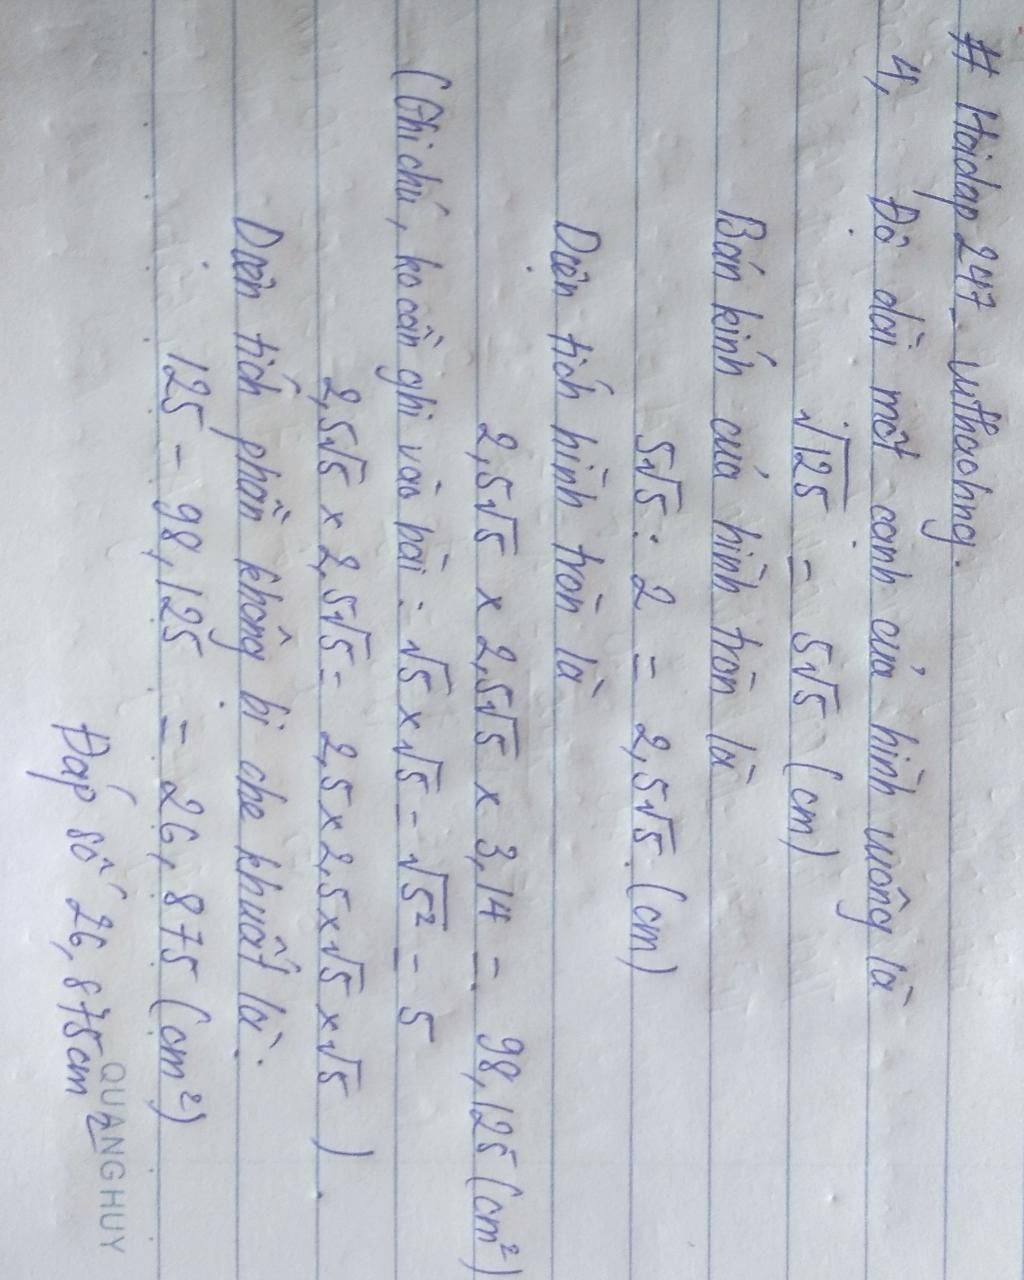 # Hoidap247_vuthaohng.
4, Độ dài một cạnh của hình vuông là
√125 = 5√5 (cm)
Bán kính của hình tròn là
5√5 : 2 = 2,5√5 (cm)
Diện tích hình tròn là
2,5√5 x 2,5√5 x 3,14 = 98,125 (cm²)
(Ghi chú, ko cần ghi vào bài: √5 x √5 = √5² = 5
2,5√5 x 2,5√5 = 2,5 x 2,5 x √5 x √5 ).
Diện tích phần không bị che khuất là:
125 - 98,125 = 26,875 (cm²)
Đáp số 26,875cm²
QUANGHUY